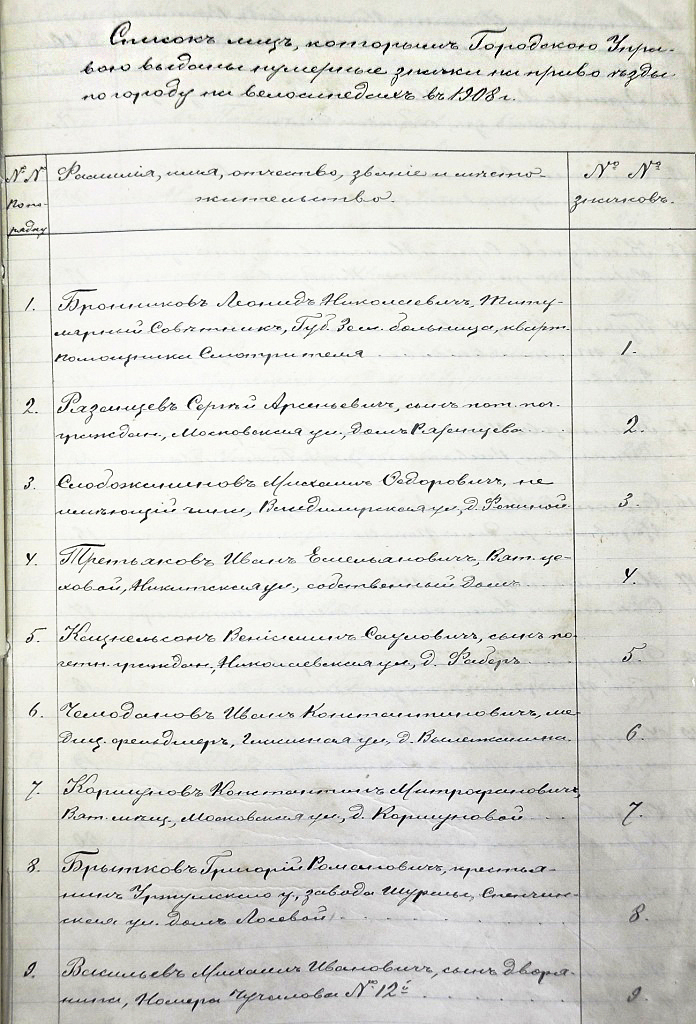 Списокъ лицъ, которымъ Городскою Упра-
вою выданы нумерные значки на право ѣзды
по городу на велосипедахъ въ 1908 г.
№ № Фамилія, имя, отчество, званіе и мѣсто- № №
по по- жительство. значковъ.
рядку
1. Бронниковъ Леонидъ Николаевичъ, Титу-
лярный Совѣтникъ, Губ. Зем. больница, кварт.
помощника Смотрителя 1.
2. Рязанцевъ Сергѣй Арсеньевичъ, сынъ пот. поч.
граждан., Московская ул., домъ Рязанцева 2.
3. Слобожаниновъ Михаилъ Ѳедоровичъ, не
имѣющій чина, Владимирская ул., д. Фокиной 3.
4. Третьяковъ Иванъ Емельяновичъ, Вят. це-
ховой, Никитская ул., собственный домъ 4.
5. Кацнельсонъ Веніаминъ Сауловичъ, сынъ по-
четн. граждан., Николаевская ул., д. Фаберъ 5.
6. Чемодановъ Иванъ Константиновичъ, ме-
диц. фельдшеръ, ул., д. 6.
7. Коршуновъ Константинъ Митрофановичъ,
Вят. мѣщ., Московская ул., д. Коршуновой 7.
8. Брытковъ Григорій Романовичъ, крестья-
нинъ Уржумскаго у., завода Шурмы, Спенчин-
ская ул. домъ Лосевой 8.
9. Васильевъ Михаилъ Ивановичъ, сынъ дворя-
нина, Номера № 12й 9.